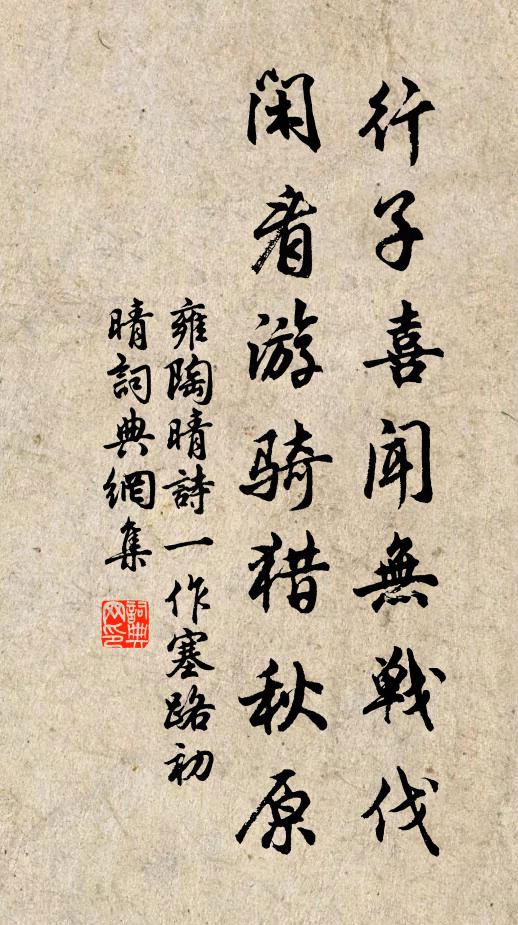 行子喜聞無戰伐
闲看游骑猎秋原
雍陶晴詩一作塞路初
晴詞典網集
詞典网印